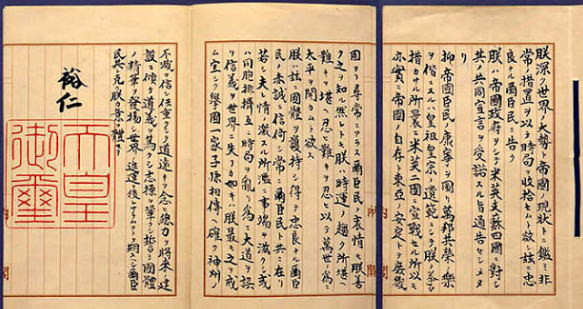 朕深ク世界ノ大勢ト帝國ノ現狀トニ鑑ミ非
常ノ措置ヲ以テ時局ヲ收拾セムト欲シ茲ニ忠
良ナル爾臣民ニ告ク
朕ハ帝國政府ヲシテ米英支蘇四國ニ對シ
其ノ共同宣言ヲ受諾スル旨通告セシメタリ
抑帝國臣民ノ康寧ヲ圖リ萬邦共榮ノ樂
ヲ偕ニスルハ皇祖皇宗ノ遺範ニシテ朕ノ拳々
措カサル所曩ニ米英二國ニ宣戰セル所以モ
亦實ニ帝國ノ自存ト東亞ノ安定トヲ庶幾
固ヨリ尋常ニアラス爾臣民ノ衷情モ朕善
ク之ヲ知ル然レトモ朕ハ時運ノ趨ク所堪ヘ
難キヲ堪ヘ忍ヒ難キヲ忍ヒ以テ萬世ノ爲ニ
太平ヲ開カムト欲ス
朕ハ茲ニ國體ヲ護持シ得テ忠良ナル爾臣
民ノ赤誠ニ信倚シ常ニ爾臣民ト共ニ在リ
若シ夫レ情ノ激スル所濫ニ事端ヲ滋クシ或
ハ同胞排擠互ニ時局ヲ亂リ爲ニ大道ヲ誤
リ信義ヲ世界ニ失フカ如キハ朕最モ之ヲ戒
ム宜シク擧國一家子孫相傳ヘ確ク神州ノ
不滅ヲ信シ任重クシテ道遠キヲ念ヒ總力ヲ將來ノ建
設ニ傾ケ道義ヲ篤クシ志操ヲ鞏クシ誓テ國體
ノ精華ヲ發揚シ世界ノ進運ニ後レサラムコトヲ期スヘシ爾臣
民其レ克ク朕カ意ヲ體セヨ
裕仁
天皇
御璽